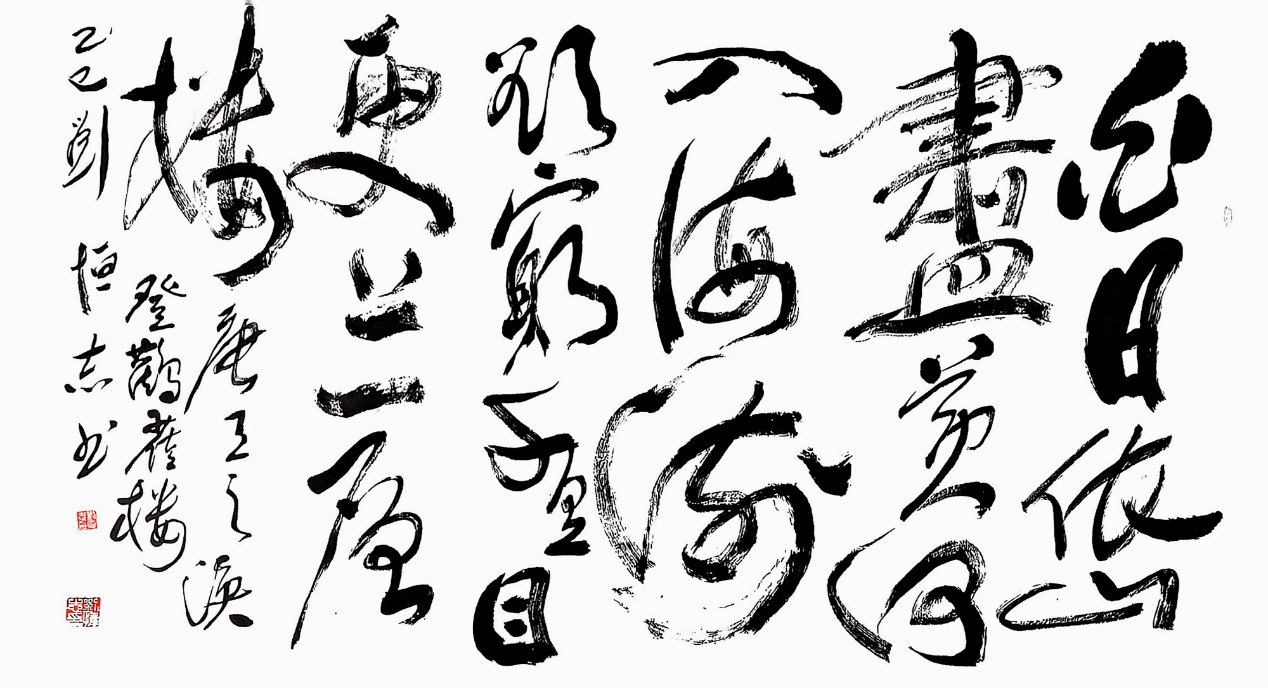 白日依山
盡黃河
入海流
欲窮千里目
更上一層
樓 唐王之渙
登鸛雀楼
乙巳劉恒志书